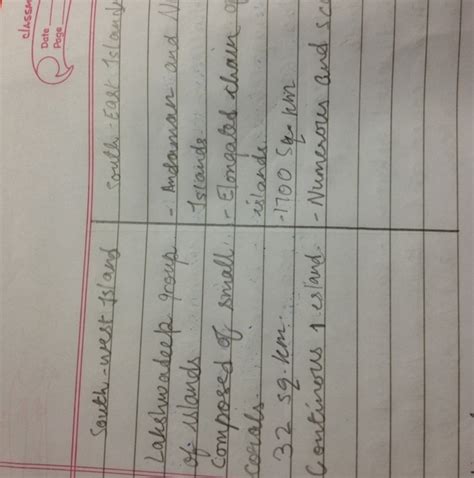 CLASSM
Date
Page
South-west Island South-East Island
Lakshwadeep group - Andaman and N
of islands Islands
Composed of small - Elongated chain o
corals. islands.
32 sq.km. -1700 Sq.km
Continous 1 island. - Numerous and sca